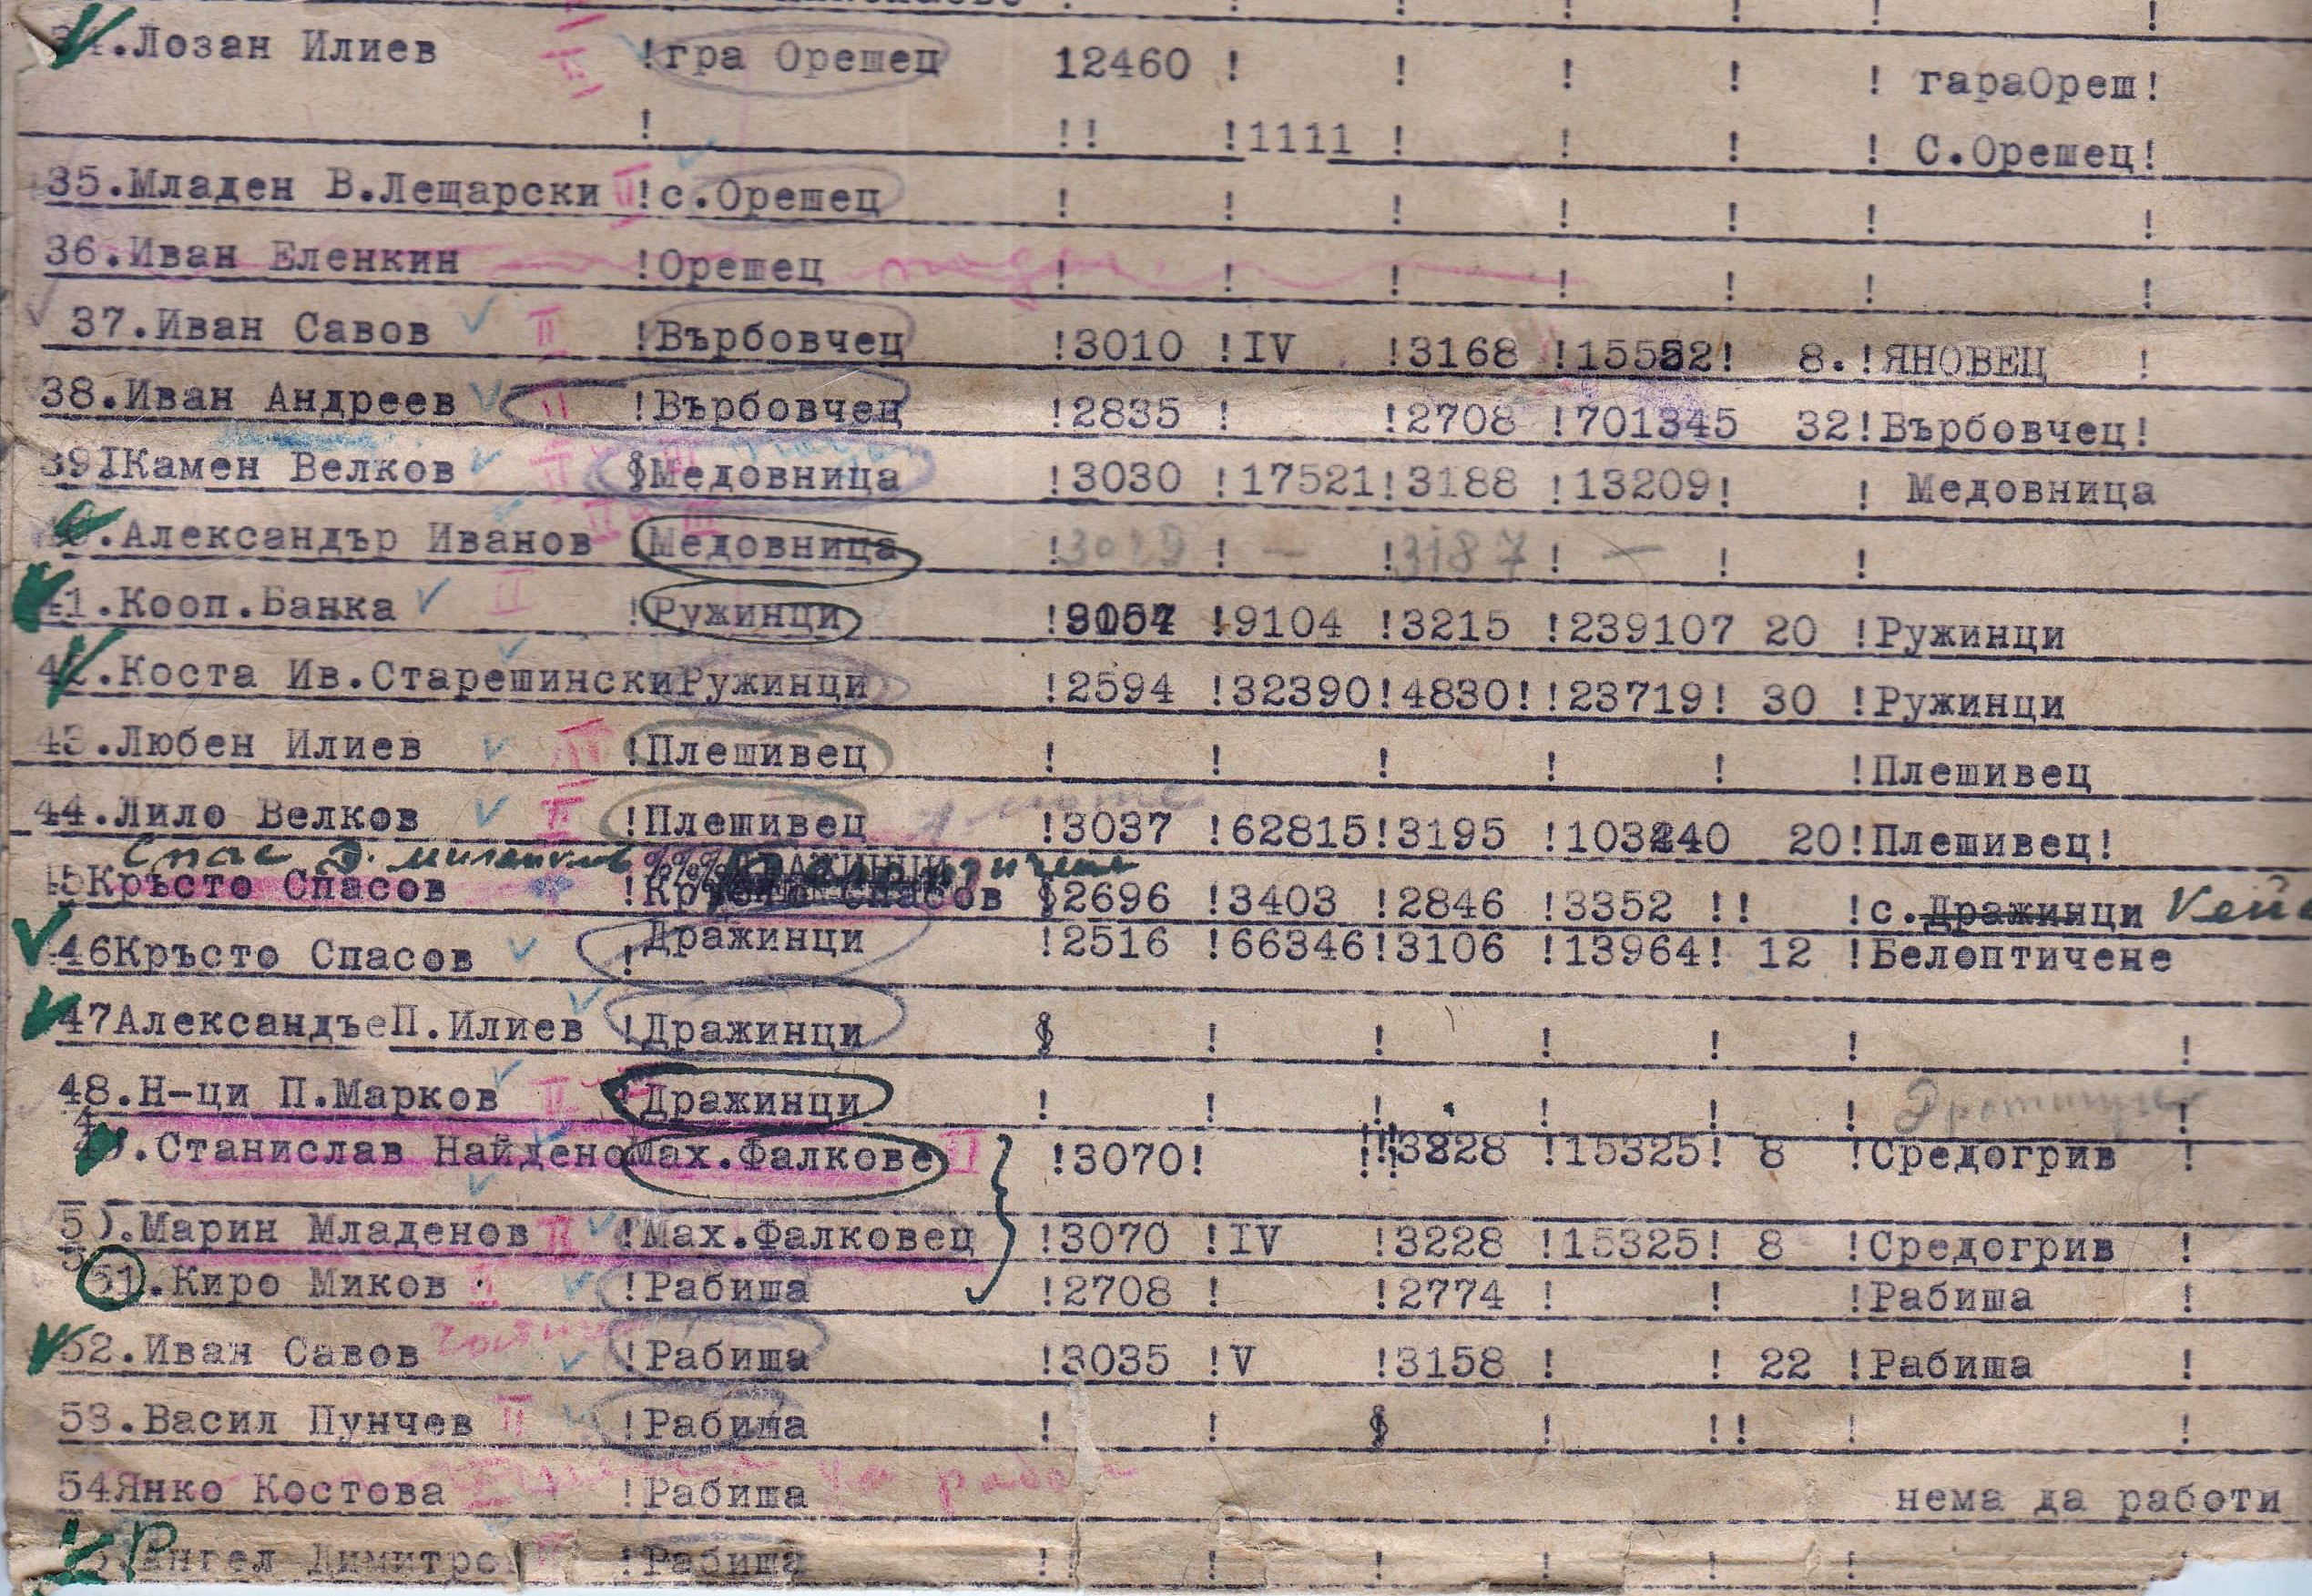 34.Лозан Илиев !гра Орешец 12460 ! ! ! ! ! гараОреш!
! !! !1111 ! ! ! ! С.Орешец!
35.Младен В.Лещарски II !с.Орешец ! ! ! ! ! ! !
36.Иван Еленкин !Орешец ! ! ! ! ! ! !
37.Иван Савов II !Върбовчец !3010 !IV !3168 !15552! 8.!ЯНОВЕЦ !
38.Иван Андреев II !Върбовчец !2835 ! !2708 !701345 32!Върбовчец!
39IКамен Велков II Медовница !3030 !17521!3188 !13209! ! Медовница
40.Александър Иванов II III Медовница !3029 ! — !3187 ! — ! !
41.Кооп.Банка II !Ружинци ! !9104 !3215 !239107 20 !Ружинци
42.Коста Ив.СтарешинскиРужинци !2594 !32390!4830!!23719! 30 !Ружинци
43.Любен Илиев II !Плешивец ! ! ! ! ! !Плешивец
44.Лило Велков II !Плешивец !3037 !62815!3195 !103240 20!Плешивец!
Спас Д. %%% ДРАЖИНЦИ
45Кръсто Спасов ! Спасов 2696 !3403 !2846 !3352 !! !с.Дражинци
46Кръсто Спасов !Дражинци !2516 !66346!3106 !13964! 12 !Белоптичене
47АлександъеП.Илиев !Дражинци ! ! ! ! ! !
48.Н-ци П.Марков II !Дражинци ! ! ! ! ! ! !
49.Станислав НайденоМах.Фалкове II !3070! !!!3228 !15325! 8 !Средогрив !
50.Марин Младенов II !Мах.Фалковец !3070 !IV !3228 !15325! 8 !Средогрив !
51.Киро Миков II !Рабиша !2708 ! !2774 ! ! !Рабиша !
52.Иван Савов !Рабиша !3035 !V !3158 ! ! 22 !Рабиша !
53.Васил Пунчев II !Рабиша ! ! ! !! ! !
54Янко Костова !Рабиша нема да работи
Ангел Димитро !Рабиша !! ! ! ! ! ! !